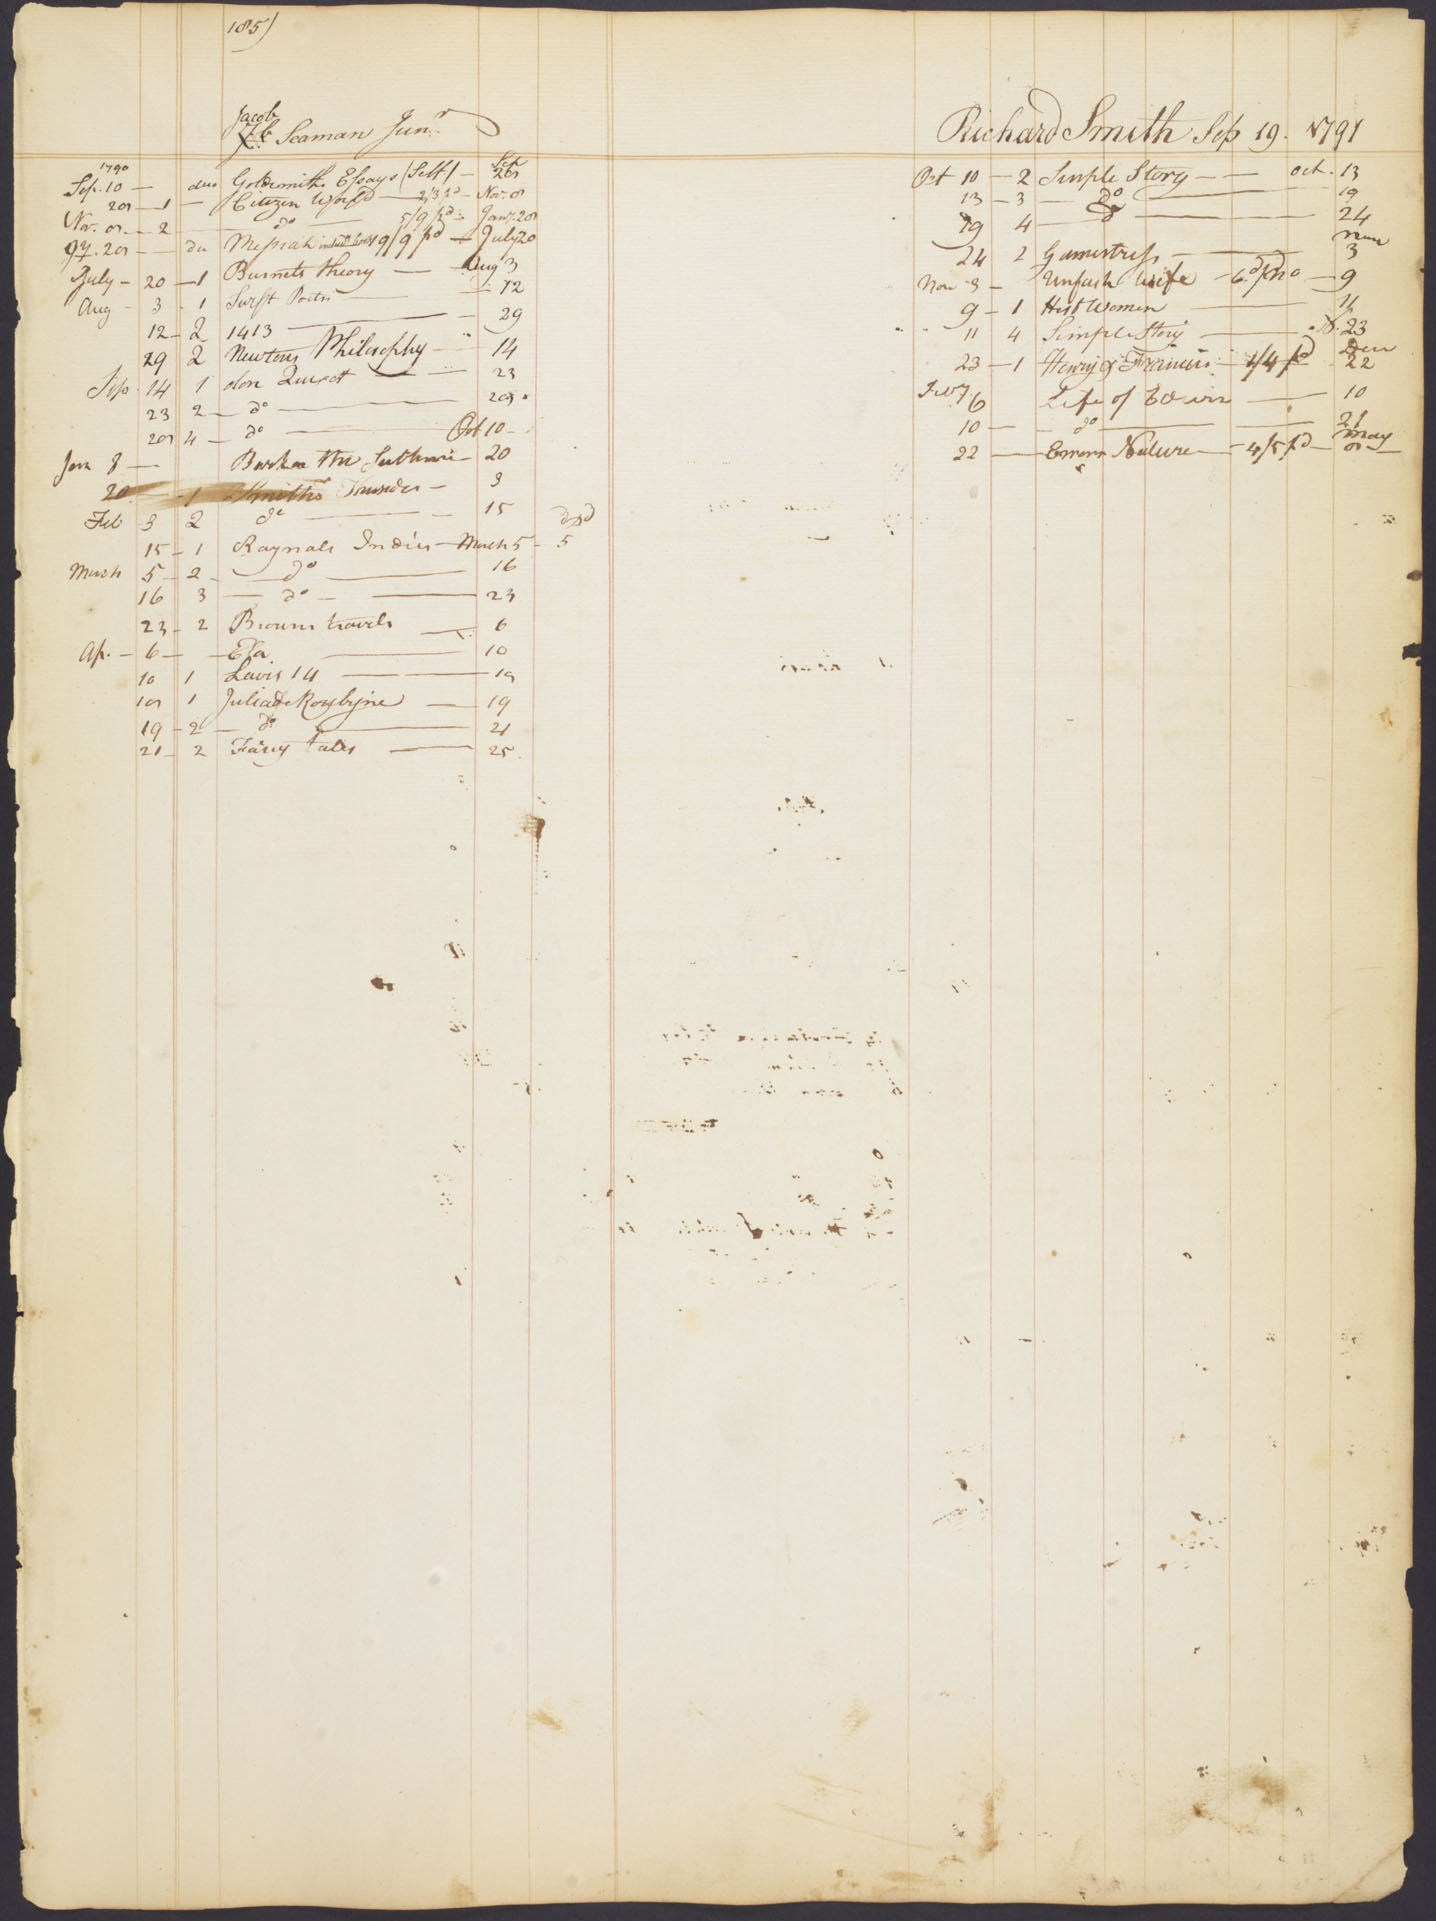 185)
Jacob
Seaman Junr.
1790
Sep. 10 — duo Goldsmiths Essays (Self) — Sep 28
28 — 1 — Citizen World — 2/3 pd — Nov. 8
Nov. 8 — 2 — do — 5/9 pd — Jany. 28
28 — du Messiah 9/9 pd — July 20
July — 20 — 1 Burnets theory — Aug 3
Aug — 3 - 1 Swift Poetis — 12
12 — 2 1413 — 29
29 2 Newtons Philosophy — 14
Sep. 14 1 don Quixott — 23
23 2 — do — 28
28 4 — do — Oct 10 -
Jan 8 — Burke the Sublime — 20
20 — 1 Smiths Thucides — 3
Feb 3 2 do — 15
15 — 1 Raynals Indies — March 5 - 5
March 5 — 2 — do — 16
16 3 — do — 23
23 — 2 Browns travels — 6
Ap. — 6 — — 10
10 1 Lewis 14 — 18
18 1 Julia de Roubigne — 19
19 — 2 — do — 21
21 — 2 Fairy tales — 25
Richard Smith Sep 19. 1791
Oct 10 — 2 Simple Story — — Oct. 13
13 — 3 — do — 19
19 4 — do — 24
24 2 Gamestress — Nov 3
Nov 3 — Unfash Wife — 6d pd — 9
9 — 1 Hist Women — 11
11 4 Simple Story — 23
23 — 1 Henry & Francis — 4/4 pd Dec 22
6 Life of Edwin — 10
10 — — do — 21
22 — Emma Nature — 4/5 pd — May 8 —